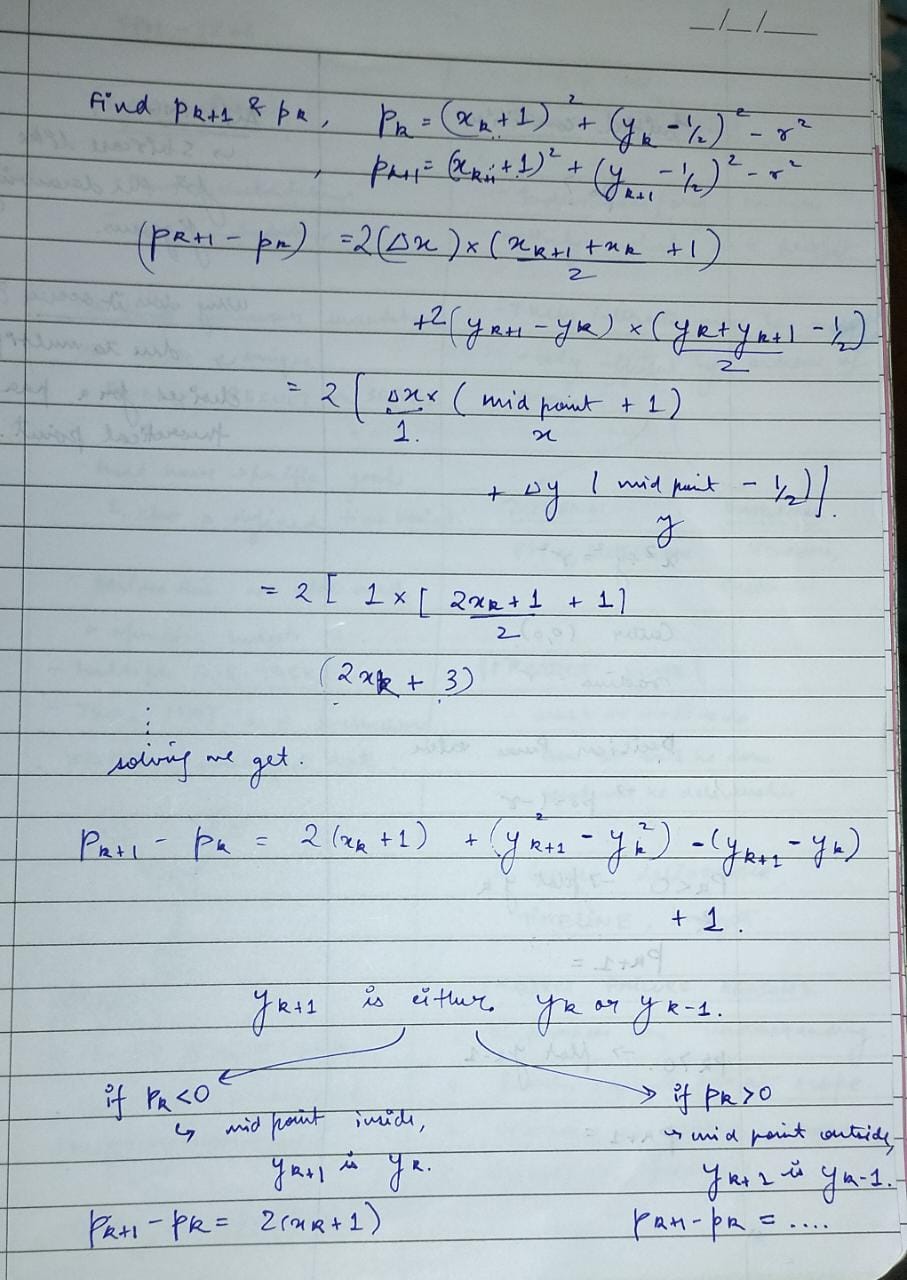 _/_/__
Find pk+1 & pk, pk = (xk+1)² + (yk - 1/2)² - r²
, pk+1 = (xk+1 + 1)² + (yk+1 - 1/2)² - r²
(pk+1 - pk) = 2(Δx) × ((xk+1 + xk)/2 + 1)
+2(yk+1 - yk) × ((yk + yk+1)/2 - 1/2)
= 2[Δx × (mid point + 1)
1. x
+ Δy (mid point - 1/2)].
y
= 2[1 × [(2xk + 1)/2 + 1]
(2xk + 3)
⋮
solving we get.
Pk+1 - pk = 2(xk+1) + (y²k+1 - y²k) - (yk+1 - yk)
+ 1.
yk+1 is either yk or yk-1.
if pk<0
↳ mid point inside,
yk+1 is yk.
pk+1 - pk = 2(xk+1)
if pk>0
↳ mid point outside,
yk+1 is yk-1.
pk+1 - pk = ....